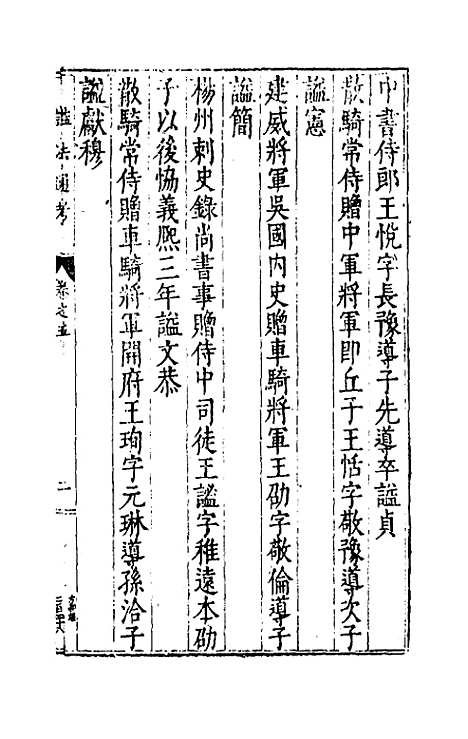 中書侍郎王悅字長豫導子先導卒謚貞
散騎常侍贈中軍將軍即丘子王恬字敬豫導次子
謚憲
建威將軍吳國內史贈車騎將軍王劭字敬倫導子
謚簡
楊州刺史錄尚書事贈侍中司徒王謐字稚遠本劭
子以後恊義熈三年謚文恭
散騎常侍贈車騎將軍開府王珣字元琳導孫洽子
謚獻穆
謚法通考
卷之五
二